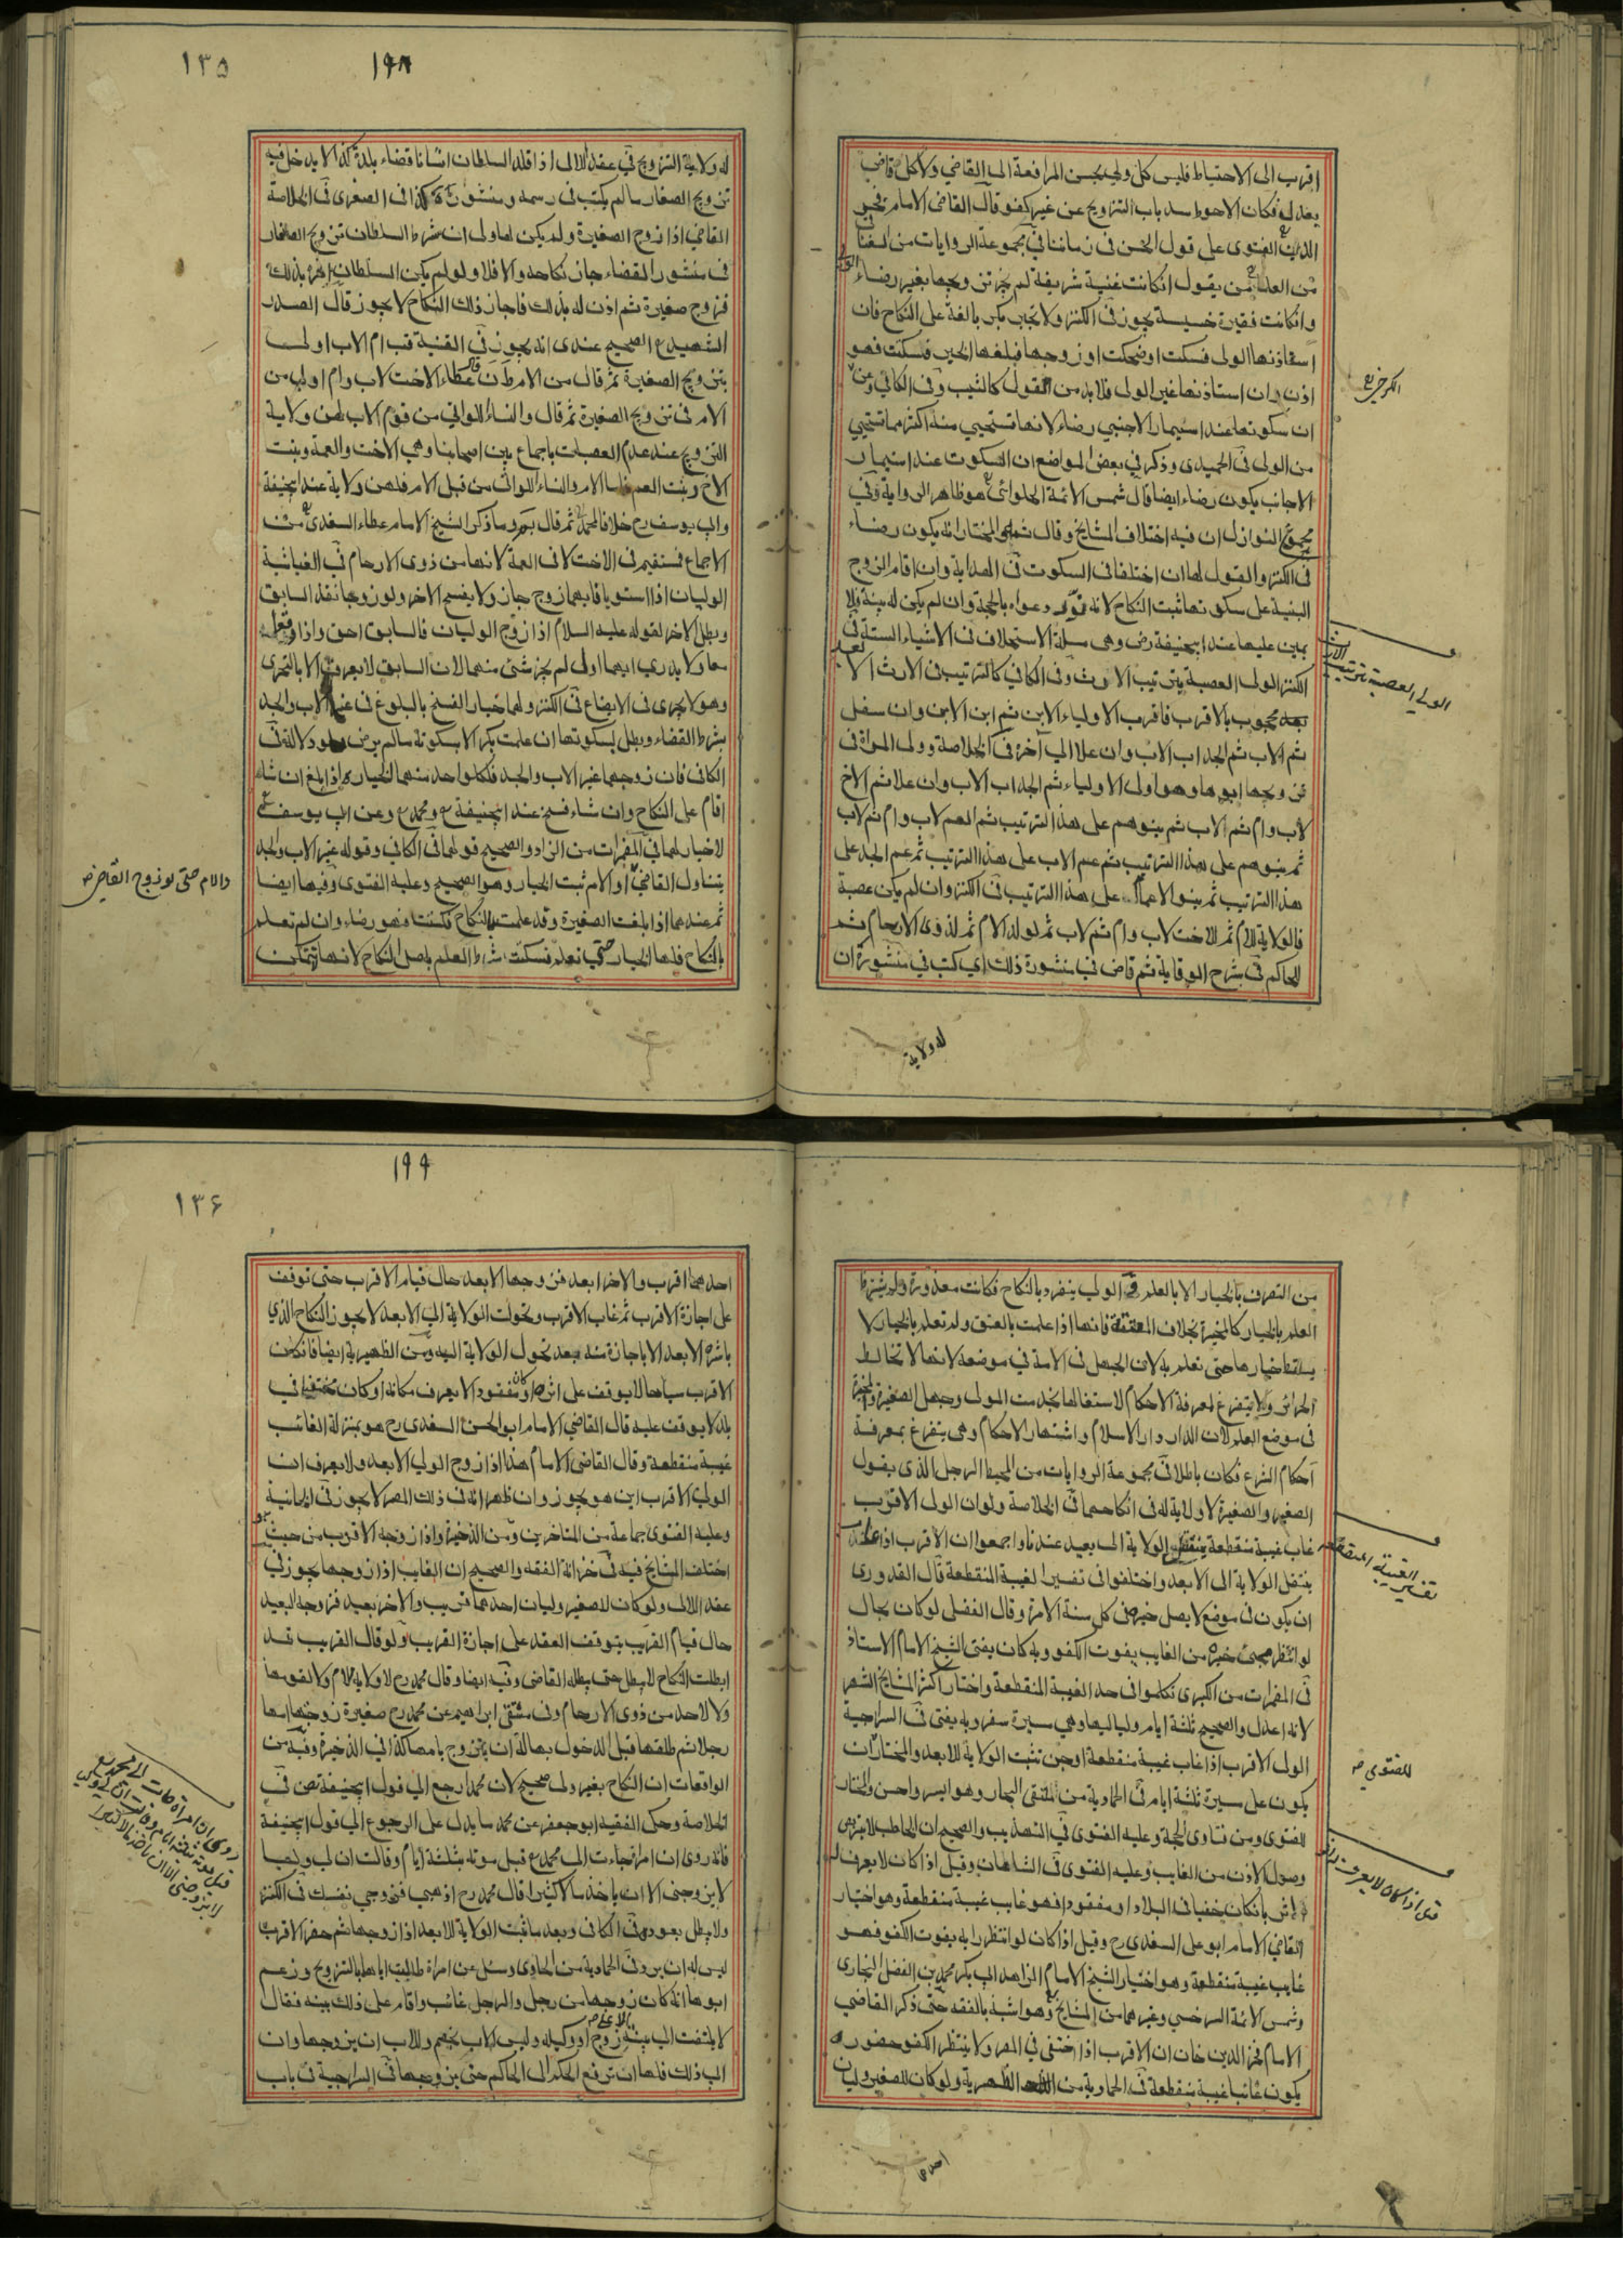 اقرب الى الاحتياط فليس كل ولي يحسن المرافعة الى القاضي ولا كل قاضي
يعدل فكان الاحوط سد باب التزويج عن غير كفو قال القاضي الامام فخر
الدين الفتوى على قول الحسن في زماننا في مجموعة الروايات من
من العلماء من يقول ان كانت غنية شريفة لم يجز تزويجها بغير رضاء الولي
وان كانت فقيرة خسيسة يجوز في الكنز ولا تجبر بكر بالغة على النكاح فان
استأذنها الولي فسكتت او ضحكت او زوجها فبلغها الخبر فسكتت فهو
اذن وان استاذنها غير الولي فلا بد من القول كالثيب وفي الكافي وعن
الكرخي
ان سكوتها عند استيمار الاجنبي رضاء لانها تستحيي منه اكثر مما تستحيي
من الولي في الحميدي وذكر في بعض المواضع ان السكوت عند استيمار
الاجانب يكون رضاء ايضا قال شمس الائمة الحلوائي هو ظاهر الرواية وفي
مجموع النوازل ان فيه اختلاف المشايخ وقال المختار انه يكون رضاء
في الكنز والقول لها ان اختلفا في السكوت في الهداية وان اقام الزوج
البينة على سكوتها ثبت النكاح لانه نور دعواه بالحجة وان لم يكن له بينة فلا
يمين عليها عند ابيحنيفة رض وهي مسئلة الاستحلاف في الاشياء الستة في
الكنز الولي العصبة بترتيب الارث وفي الكافي كالترتيب في الارث الا
الولي العصبة بترتيب الارث
بعد محجوب بالاقرب فاقرب الاولياء الابن ثم ابن الابن وان سفل
ثم الاب ثم الجد اب الاب وان علا الى آخره في الخلاصة وولي المراة في
تزويجها ابوها وهو اولى الاولياء ثم الجد اب الاب وان علا ثم الاخ
لاب وام ثم لاب ثم بنوهم على هذا الترتيب ثم العم لاب وام ثم لاب
ثم بنوهم على هذا الترتيب ثم عم الاب على هذا الترتيب ثم عم الجد على
هذا الترتيب ثم بنو الاعمام على هذا الترتيب في الكنز وان لم يكن عصبة
فالولاية للام ثم للاخت لاب وام ثم لاب ثم لولد الام ثم لذوى الارحام ثم
للحاكم في شرح الوقاية ثم قاض في منشوره ذلك اي كتب في منشوره ان
له ولاية
١٣٥
١٩٨
له ولاية التزويج في عقد اللالى اذا قلد السلطان انسانا قضاء بلدة كذا لا يدخل فيه
تزويج الصغار ما لم يكتب في رسمه ومنشوره كذا في الصغرى في الخلاصة
القاضي اذا زوج الصغيرة ولم يكن لها ولي ان شرط السلطان تزويج الصغار
في منشور القضاء جاز نكاحه والا فلا ولو لم يكن السلطان امره بذلك
فزوج صغيرة ثم اذن له بذلك فاجاز ذلك النكاح لا يجوز قال الصدر
الشهيد ع الصحيح عندي انه يجوز في القنية قب ام الاب اولى
بتزويج الصغيرة ثم قال من الام عطاء الاخت لاب وام اولى من
الام في تزويج الصغيرة ثم قال والنساء اللواتي من قوم الاب لهن ولاية
التزويج عند عدم العصبات باجماع بين اصحابنا وهي الاخت والعمة وبنت
الاخ وبنت العم فاما الام والنساء اللواتي من قبل الام فلهن ولاية عند ابيحنيفة
وابي يوسف رح خلافا لمحمد ثم قال وما ذكر الشيخ الامام عطاء السغدي من
الاجماع فستقيم في الاخت لا في العمة لانها من ذوى الارحام في الغياثية
الوليان اذا استويا فايهما زوج جاز ولا يفسخ الاخر ولو زوجا نفذ السابق
وبطل الاخر لقوله عليه السلام اذا زوج الوليان فالسابق احق واذا وقعا
معا ولا يدري ايهما اولى لم يجز شئ منهما لان السابق لا يعرف الا بالتحري
وهو لا يجرى في الابضاع في الكنز ولهما خيار الفسخ بالبلوغ في غير الاب والجد
بشرط القضاء وبطل بسكوتها ان علمت بكرا لا بسكوته ما لم يرض ولو دلالة في
الكافي فان زوجهما غير الاب والجد فلكل واحد منهما الخيار اذا بلغ ان شاء
اقام على النكاح وان شاء فسخ عند ابيحنيفة ع ومحمد ع وعن ابي يوسف ع
لا خيار لهما في المضمرات من الزاد والصحيح قولهما في الكافي وقوله غير الاب والجد
يتناول القاضي والام ثبت الخيار وهو الصحيح وعليه الفتوى وفيها ايضا
والام حتى لو زوج القاضي صح
ثم عندهما اذا بلغت الصغيرة وقد علمت بالنكاح فسكتت فهو رضاء وان لم تعلم
بالنكاح فلها الخيار حتى تعلم فسكتت شرط العلم باصل النكاح لانها لا تتمكن
من التصرف بالخيار الا بالعلم الولي ينفرد بالنكاح فكانت معذورة ولم يشترط
العلم بالخيار كالمخيرة بخلاف المعتقة فانها اذا علمت بالعتق ولم تعلم بالخيار لا
يسقط خيارها حتى تعلم به لان الجهل في الامة في موضعه لانها لا تخالط
الحرائر ولا تتفرغ لمعرفة الاحكام لاشتغالها بخدمة المولى وجهل الصغيرة والحرة
في موضع العلم لان الدار دار الاسلام واشتهار الاحكام وهي تتفرغ بمعرفة
احكام الشرع فكان باطلا في مجموعة الروايات من المحيط الرجل الذي يعول
الصغير والصغيرة لا ولاية له في انكاحهما في الخلاصة ولو ان الولي الاقرب
غاب غيبة منقطعة ينتقل الولاية الى بعيد عندنا واجمعوا ان الاقرب اذا
تفسير الغيبة المنقطعة
ينتقل الولاية الى الابعد واختلفوا في تفسير الغيبة المنقطعة قال القدوري
ان يكون في موضع لا يصل خبره في كل سنة الا مرة وقال الفضلي لو كان بحال
لو انتظر مجيئ خبره من الغايب يفوت الكفو وبه كان يفتي الشيخ الامام الاستاذ
في المضمرات من الكبرى تكلموا في حد الغيبة المنقطعة واختار اكثر المشايخ الشهر
لانه اعدل والصحيح ثلثة ايام ولياليها وهي مسيرة سفر وبه يفتى في السراجية
الولي الاقرب اذا غاب غيبة منقطعة او جن تثبت الولاية للابعد والمختار ان
يكون على مسيرة ثلثة ايام في الحمادية من ملتقى البحار وهو ايسر واحسن والمختار
للفتوى
للفتوى ومن فتاوى الحجة وعليه الفتوى في التهذيب والصحيح ان الخاطب لا يرضى
وصول الاذن من الغايب وعليه الفتوى في الشاهان وقيل اذا كان لا يعرف له
قيل اذا كان لا يعرف له
اثر بان كان خفيا في البلاد او مفقودا فهو غايب غيبة منقطعة وهو اختيار
القاضي الامام ابو على السغدي رح وقيل اذا كان لو انتظر رايه يفوت الكفو فهو
غايب غيبة منقطعة وهو اختيار الشيخ الامام الزاهد ابي بكر محمد بن الفضل البخارى
وشمس الائمة السرخسي وغيرهما من المشايخ وهو اشبه بالفقه حتى ذكر القاضي
الامام فخر الدين خان ان الاقرب اذا اختفى في المصر ولا ينتظر الكفو حضوره
يكون غائبا غيبة منقطعة في الحمادية من الظهيرية ولو كان للصغير وليان
احدهما
١٣٦
١٩٩
احدهما اقرب والاخر ابعد فزوجها الابعد حال قيام الاقرب حتى توقف
على اجازة الاقرب ثم غاب الاقرب وتحولت الولاية الى الابعد لا يجوز النكاح الذي
باشره الابعد الا باجازة منه بعد تحول الولاية اليه ومن الظهيرية ايضا فان كان
الاقرب سياحا لا يوقف على اثره او كان مفقودا لا يعرف مكانه او كان مختفيا في
بلد لا يوقف عليه قال القاضي الامام ابو الحسن السغدي رح هو بمنزلة الغائب
غيبة منقطعة وقال القاضي الامام هذا اذا زوج الولي الابعد ولا يعرف ان
الولي الاقرب اين هو يجوز وان ظهر انه في ذلك المصر لا يجوز في الخانية
وعليه الفتوى جماعة من المتاخرين ومن الذخيرة واذا زوجه الاقرب من حيث هو
اختلف المشايخ فيه في خزانة الفقه والصحيح ان الغايب اذا زوجها يجوز في
عقد اللالى ولو كان لصغير وليان احدهما قريب والاخر بعيد فزوجه البعيد
حال قيام القريب يتوقف العقد على اجازة القريب ولو قال القريب قد
ابطلت النكاح لا يبطل حتى يبطله القاضي وفيه ايضا وقال محمد رح لا ولاية للام ولا لقومها
ولا لاحد من ذوى الارحام وفي منتقى ابراهيم عن محمد رح صغيرة زوجتها امها
رجلا ثم طلقها قبل الدخول بها له ان يتزوج بامها كذا في الذخيرة وفيه من
الواقعات ان النكاح بغير ولي صحيح لان محمدا رجع الى قول ابيحنيفة نص في
الخلاصة وحكى الفقيه ابو جعفر عن محمد ما يدل على الرجوع الى قول ابيحنيفة
روى ان امراة جاءت الى محمد ع قبل موته بثلثة ايام وقالت ان لي وليا لا يزوجني الا ان ياخذ مالا كثيرا
فانه روى ان امراة جاءت الى محمد ع قبل موته بثلثة ايام وقالت ان لي وليا
لا يزوجني الا ان ياخذ مالا كثيرا قال محمد رح اذهبي فزوجي نفسك في الكنز
ولا يبطل بعوده في الكافي وبعد ما ثبت الولاية للابعد اذا زوجها ثم حضر الاقرب
ليس له ان يرد وفي الحمادية من الحاوي وسئل عن امراة طالبت اباها بالتزويج وزعم
ابوها انه كان زوجها من رجل والرجل غائب واقام على ذلك بينة فقال
لا يلتفت الى بينة زوج او وكيله وليس الاب بخصم وللاب ان يزوجها وان
ابى ذلك فلها ان ترفع الحكم الى الحاكم حتى يزوجها في السراجية في باب